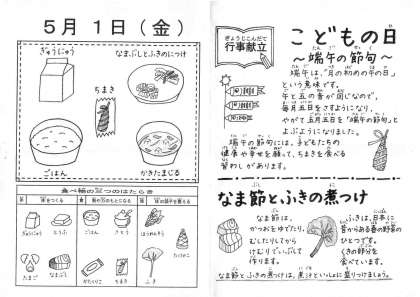 5月1日（金）
ぎゅうにゅう
なまぶしとふきのにつけ
ちまき
ごはん
かきたまじる
食べ物の三つのはたらき
赤
体をつくる
黄
熱や力のもとになる
緑
体の調子を整える
ぎゅうにゅう
とうふ
ごはん
さとう
ほうれんそう
たまご
なまぶし
かたくりこ
ちまき
ふき
ぎょうじこんだて
行事献立
こどもの日
～端午の節句～
たんご
せっく
端午は、「月の初めの午の日」
という意味です。
午と五の音が同じなので、
毎月五日をさすようになり、
やがて五月五日を「端午の節句」と
よぶようになりました。
端午の節句には、子どもたちの
健康や幸せを願って、ちまきを食べる
習わしがあります。
なま節とふきの煮つけ
なま節は、
かつおをゆでたり、
むしたりしてから
けむりでいぶして
作ります。
ふきは、日本に
昔からある春の野菜の
ひとつです。
くきの部分を
食べています。
なま節とふきの煮つけは、煮汁といっしょに盛りつけましょう。